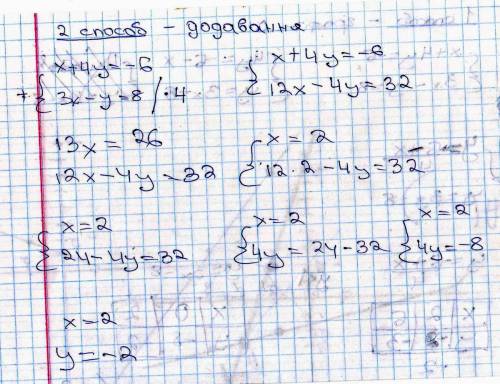 2 способ – додавання
x+4y=-6
+ 3x-y=8 /·4
x+4y=-6
12x-4y=32
13x=26
12x-4y=32
x=2
12·2-4y=32
x=2
24-4y=32
x=2
4y=24-32
x=2
4y=-8
x=2
y=-2